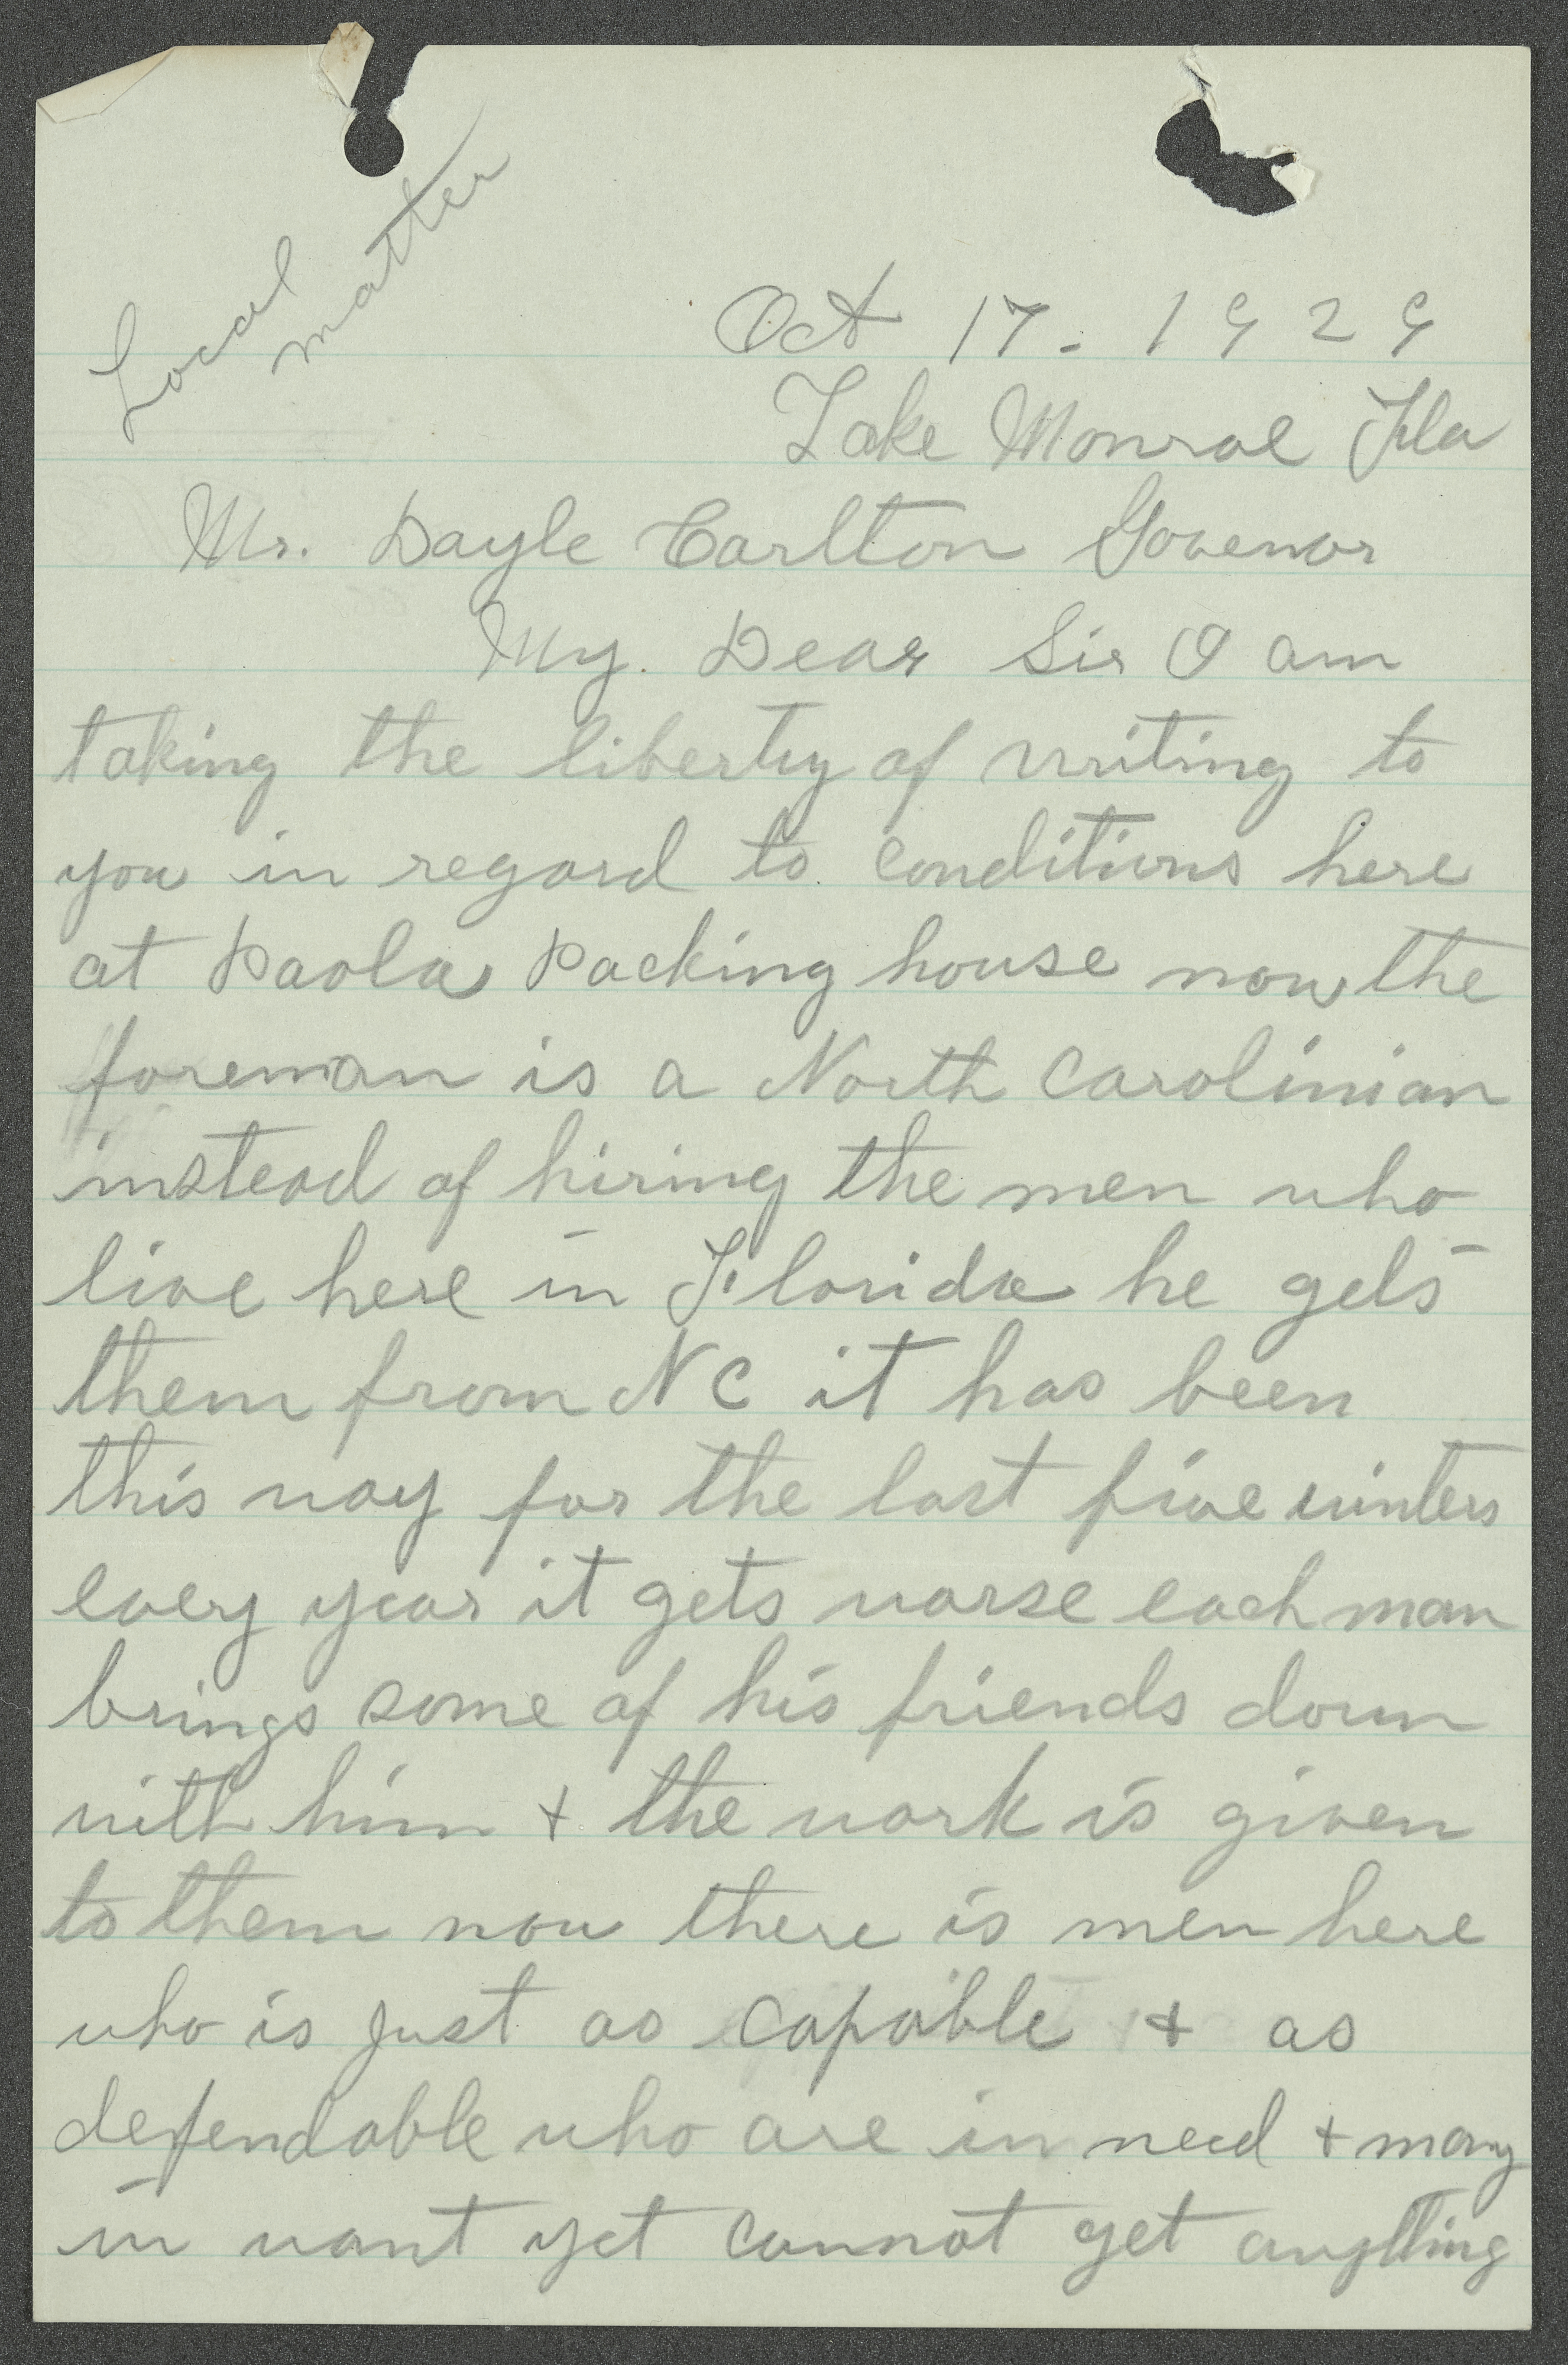 Local
matter
Oct 17. 1929
Lake Monroe Fla
Mr. Dayle Carlton Govenor
My. Dear Sir I am
taking the liberty of writing to
you in regard to conditions here
at Paola Packing house now the
foreman is a North Carolinian
instead of hiring the men who
live here in Florida he gets
them from NC it has been
this way for the last five winters
every year it gets worse each man
brings some of his friends down
with him + the work is given
to them now there is men here
who is just as capable + as
dependable who are in need + many
in want yet cannot get anything